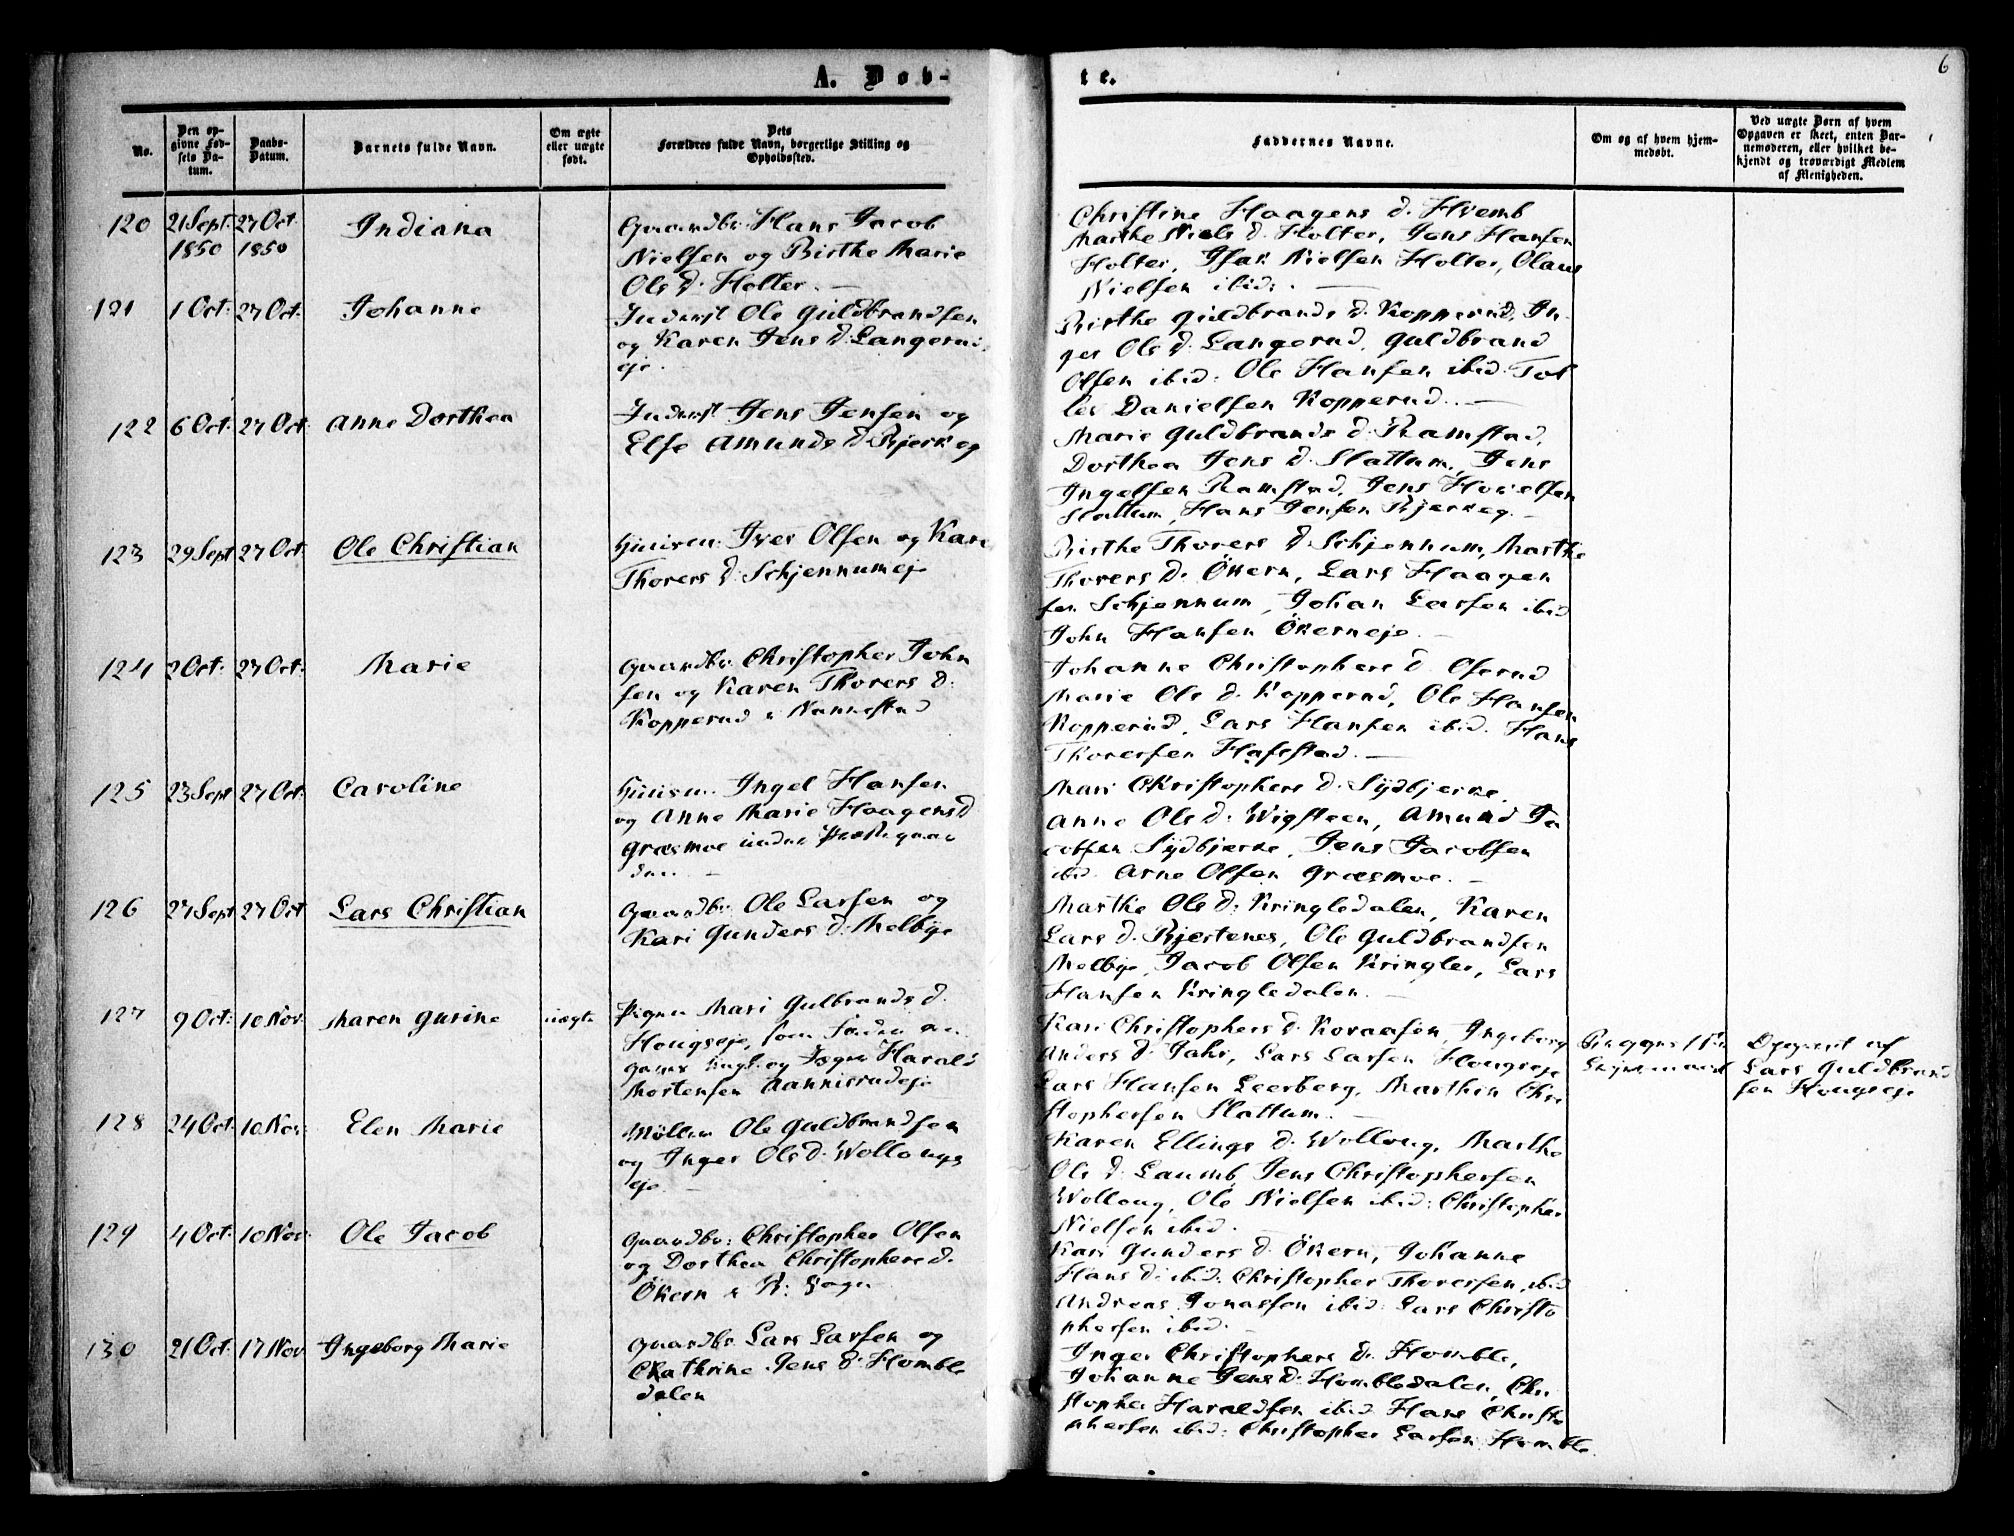 A. Døb-
No.
Den op-
givne Fød-
sels Da-
tum.
Daabs-
Datum.
Barnets fulde Navn.
Om ægte
eller uægte
født.
Dets
Forældres fulde Navn, borgerlige Stilling og
Opholdssted.
120 21 Sept: 27 Oct: Indiana
1850 1850
Gaardbr: Hans Jacob
Nielsen og Birthe Marie
Ols d: Holter. —
121 1 Oct: 27 Oct: Johanne
Inderst Ole Guldbrandsen
og Karen Jens d: Langerud
eje.
122 6 Oct: 27 Oct: Anne Dorthea
Inderst Jens Jensen og
Else Amunds d: Bjerkeg
123 29 Sept 27 Oct: Ole Christian
Huusm: Iver Olsen og Kari
Thorers d: Schjennumeje
124 2 Oct: 27 Oct: Marie
Gaardbr: Christopher John
sen og Karen Thorers d:
Kopperud i Nannestad
125 23 Sept 27 Oct: Caroline
Huusm: Ingel Hansen
og Anne Marie Haagens d
Græsmoe under Præstegaar
den. —
126 27 Sept 27 Oct Lars Christian
Gaardbr: Ole Larsen og
Kari Gunders d: Melbye
127 9 Oct: 10 Nov: Maren Gurine uægte
Pigen Mari Gulbrands d.
Hougseje, som Fader an
gaves Ungk. og Harald
Mortensen Aannerudeje
128 24 Oct: 10 Nov: Elen Marie
Møller Ole Guldbrandsen
og Inger Ols d: Wollougs
eje. —
129 4 Oct: 10 Nov: Ole Jacob
Gaardbr: Christopher Olsen
og Dorthea Christophers d.
Økern i H: Sogn
130 21 Oct: 17 Nov Ingeborg Marie
Gaardbr: Lars Larsen og
Chathrine Jens d: Homble
dalen
te.
6
Faddernes Navne.
Om og af hvem hjem-
medøbt.
Ved uægte Børn af hvem
Opgaven er skeet, enten Bar-
nemoderen, eller hvilket be-
kjendt og troværdigt Medlem
af Menigheden.
Christine Haagens d: Hvemb
Marthe Niels d: Holter, Jens Hansen
Holter, Isak Nielsen Holter, Olaus
Nielsen ibid: —
Birthe Guldbrands d: Kopperud, In
ger Ols d: Langerud, Guldbrand
Olsen ibid: Ole Hansen ibid: Tol
lev Danielsen Kopperud. —
Marie Guldbrands d: Ramstad,
Dorthea Jens d: Slattum, Jens
Ingelsen Ramstad, Jens Hovelsen
Slattum, Hans Jensen Bjerkeg. —
Birthe Thorers d: Schjennum, Marthe
Thorers d: Økern, Lars Haagen
sen Schjennum, Johan Larsen ibid
John Hansen Økerneje. —
Johanne Christophers d: Oserud
Marie Ols d: Kopperud, Ole Hansen
Kopperud, Lars Hansen ibid. Hans
Thoresen Hafstad. —
Mari Christophers d: Sydbjerke,
Anne Ols d: Wigsteen, Amund Ja
cobsen Sydbjerke, Jens Jacobsen
ibid. Arne Olsen Græsmoe. —
Marthe Ols d: Kringledalen, Karen
Lars d: Bjertenes, Ole Guldbrandsen
Melbye, Jacob Olsen Kringler, Lars
Hansen Kringledalen. —
Kari Christophers d: Koraasen, Ingeborg
Anders d: Jahr, Lars Larsen Hougseje
Lars Hansen Leerberg, Marthin Chri
stophersen Slattum. —
Opgivet af
Lars Guldbrand
sen Hougseje
Karen Ellings d: Wolloug, Marthe
Ols d: Laumb, Jens Christophersen
Wolloug, Ole Nielsen ibid: Christopher
Nielsen ibid. —
Kari Gunders d: Økern, Johanne
Hans d: ibid: Christopher Thoresen, ibid
Andreas Jonassen ibid: Lars Christo
phersen ibid: —
Inger Christophers d: Homble,
Johanne Jens d: Hombledalen, Chri
stopher Haraldsen ibid. Hans Christo
phersen ibid: Christopher Larsen Homble